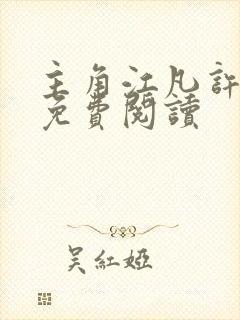 主角江凡許
免費閱讀
吳紅婭